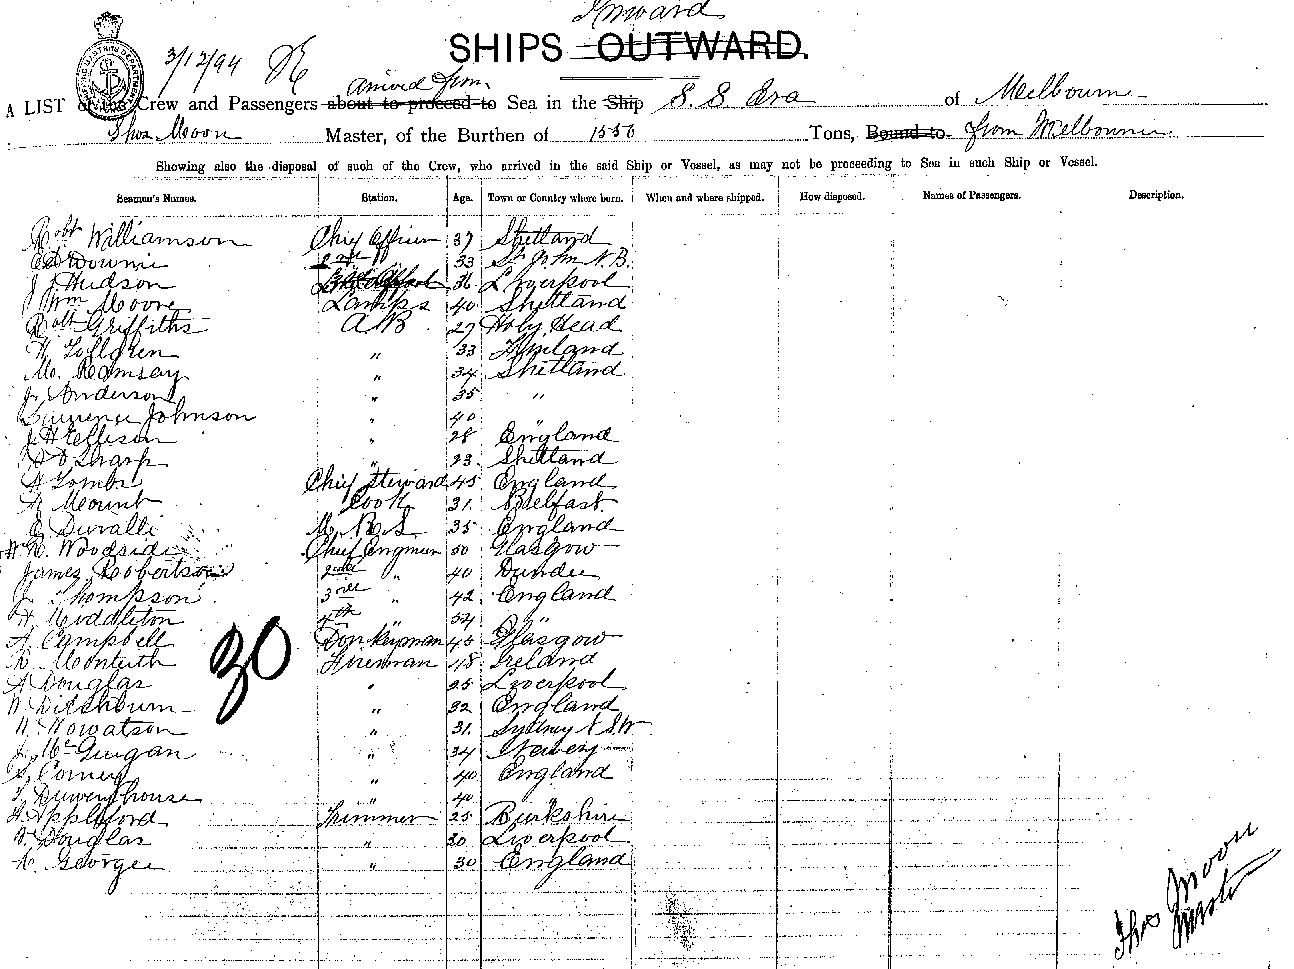 Inward
SHIPS OUTWARD.
3/12/94
arrived from
A LIST of the Crew and Passengers about to proceed to Sea in the Ship S. S Era of Melbourne
Thos Moon Master, of the Burthen of 1550 Tons, Bound to from Melbourne
Showing also the disposal of such of the Crew, who arrived in the said Ship or Vessel, as may not be proceeding to Sea in such Ship or Vessel.
Seamen's Names. Station. Age. Town or Country where born. When and where shipped. How disposed. Names of Passengers. Description.
Robt Williamson Chief Officer 37 Shetland
Ed Downie 2nd " 33 St John N.B.
J J Hudson 36 Liverpool
Wm Moore Lamps 40 Shetland
Robt Griffiths A B 27 Holy Head
Lofgren " 33 Finland
M. Ramsay " 34 Shetland
J. Anderson " 35 "
Laurence Johnson " 40 "
J H Ellison " 28 England
Sharp " 23 Shetland
Tombs Chief Steward 45 England
Mount Cook 31. Belfast.
Duvalli M. R. S. 35 England
R. Woodside Chief Engineer 50 Glasgow
James Robertson 2nd " 40 Dundee
J. Thompson 3rd " 42 England
Middleton 4th " 34 "
A Campbell Donkeyman 43 Glasgow
30
Monteith Fireman 48 Ireland
A Douglas " 25 Liverpool
Ditchburn " 32 England
Howatson " 31. Sydney N S.W
J. McGuigan " 34 Newery
Corney " 40 England
" 40 "
Appleford Trimmer 25 Burkshire
Douglas " 30 Liverpool
George " 30 England
Thos Moon
Master